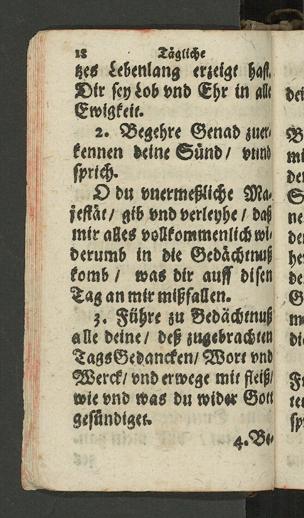 18 Tägliche
tzes Lebenlang erzeigt hast.
Dir sey Lob vnd Ehr in alle
Ewigkeit.
2. Begehre Genad zuer-
kennen deine Sünd / vnnd
sprich.
O du vnermeßliche Ma-
jestät / gib vnd verleyhe / daß
mir alles vollkommenlich wi-
derumb in die Gedächtnuß
komb / was dir auff disen
Tag an mir mißfallen.
3. Führe zu Gedächtnuß
alle deine / deß zugebrachten
Tags Gedancken / Wort vnd
Werck / vnd erwege mit fleiß /
wie vnd was du wider Gott
gesündiget.
4. Be-